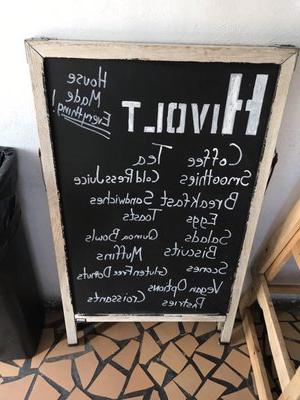 HIVOLT
House
Made
Everything!
Coffee Tea
Smoothies Cold Press Juice
Breakfast Sandwiches
Eggs Toasts
Salads Quinoa Bowls
Biscuits Muffins
Scones Gluten Free Donuts
Vegan Options
Pastries Croissants